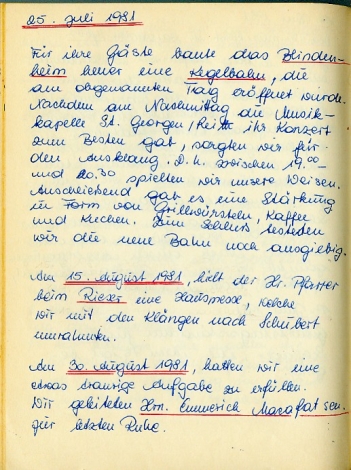 25. Juli 1981
Für ihre Gäste baute das Blinden-
heim heuer eine Kegelbahn, die
am obgenannten Tag eröffnet wurde.
Nachdem am Nachmittag die Musik-
kapelle St. Georgen/Reith ihr Konzert
zum Besten gab, sorgten wir für
den Ausklang. D.h. zwischen 19.00
und 20.30 spielten wir unsere Weisen.
Anschließend gab es eine Stärkung
in Form von Grillwürsteln, Kaffee
und Kuchen. Zum Schluß testeten
wir die neue Bahn noch ausgiebig.
Am 15. August 1981, hielt der Hr. Pfarrer
beim Rieser eine Hausmesse, welche
wir mit den Klängen nach Schubert
umrahmten.
Am 30. August 1981, hatten wir eine
etwas traurige Aufgabe zu erfüllen.
Wir geleiteten Hrn. Emmerich sen.
zur letzten Ruhe.